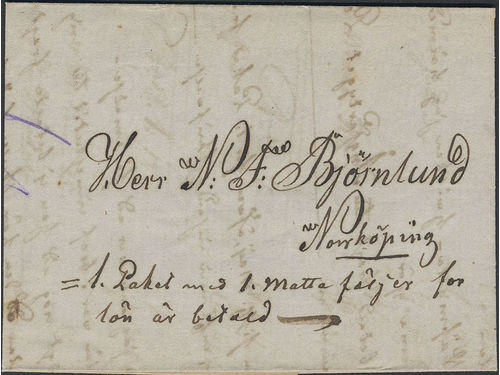 Herr N: F: Björnlund
Norrköping
= 1. Paket med 1. Matta följer for
lön är betald